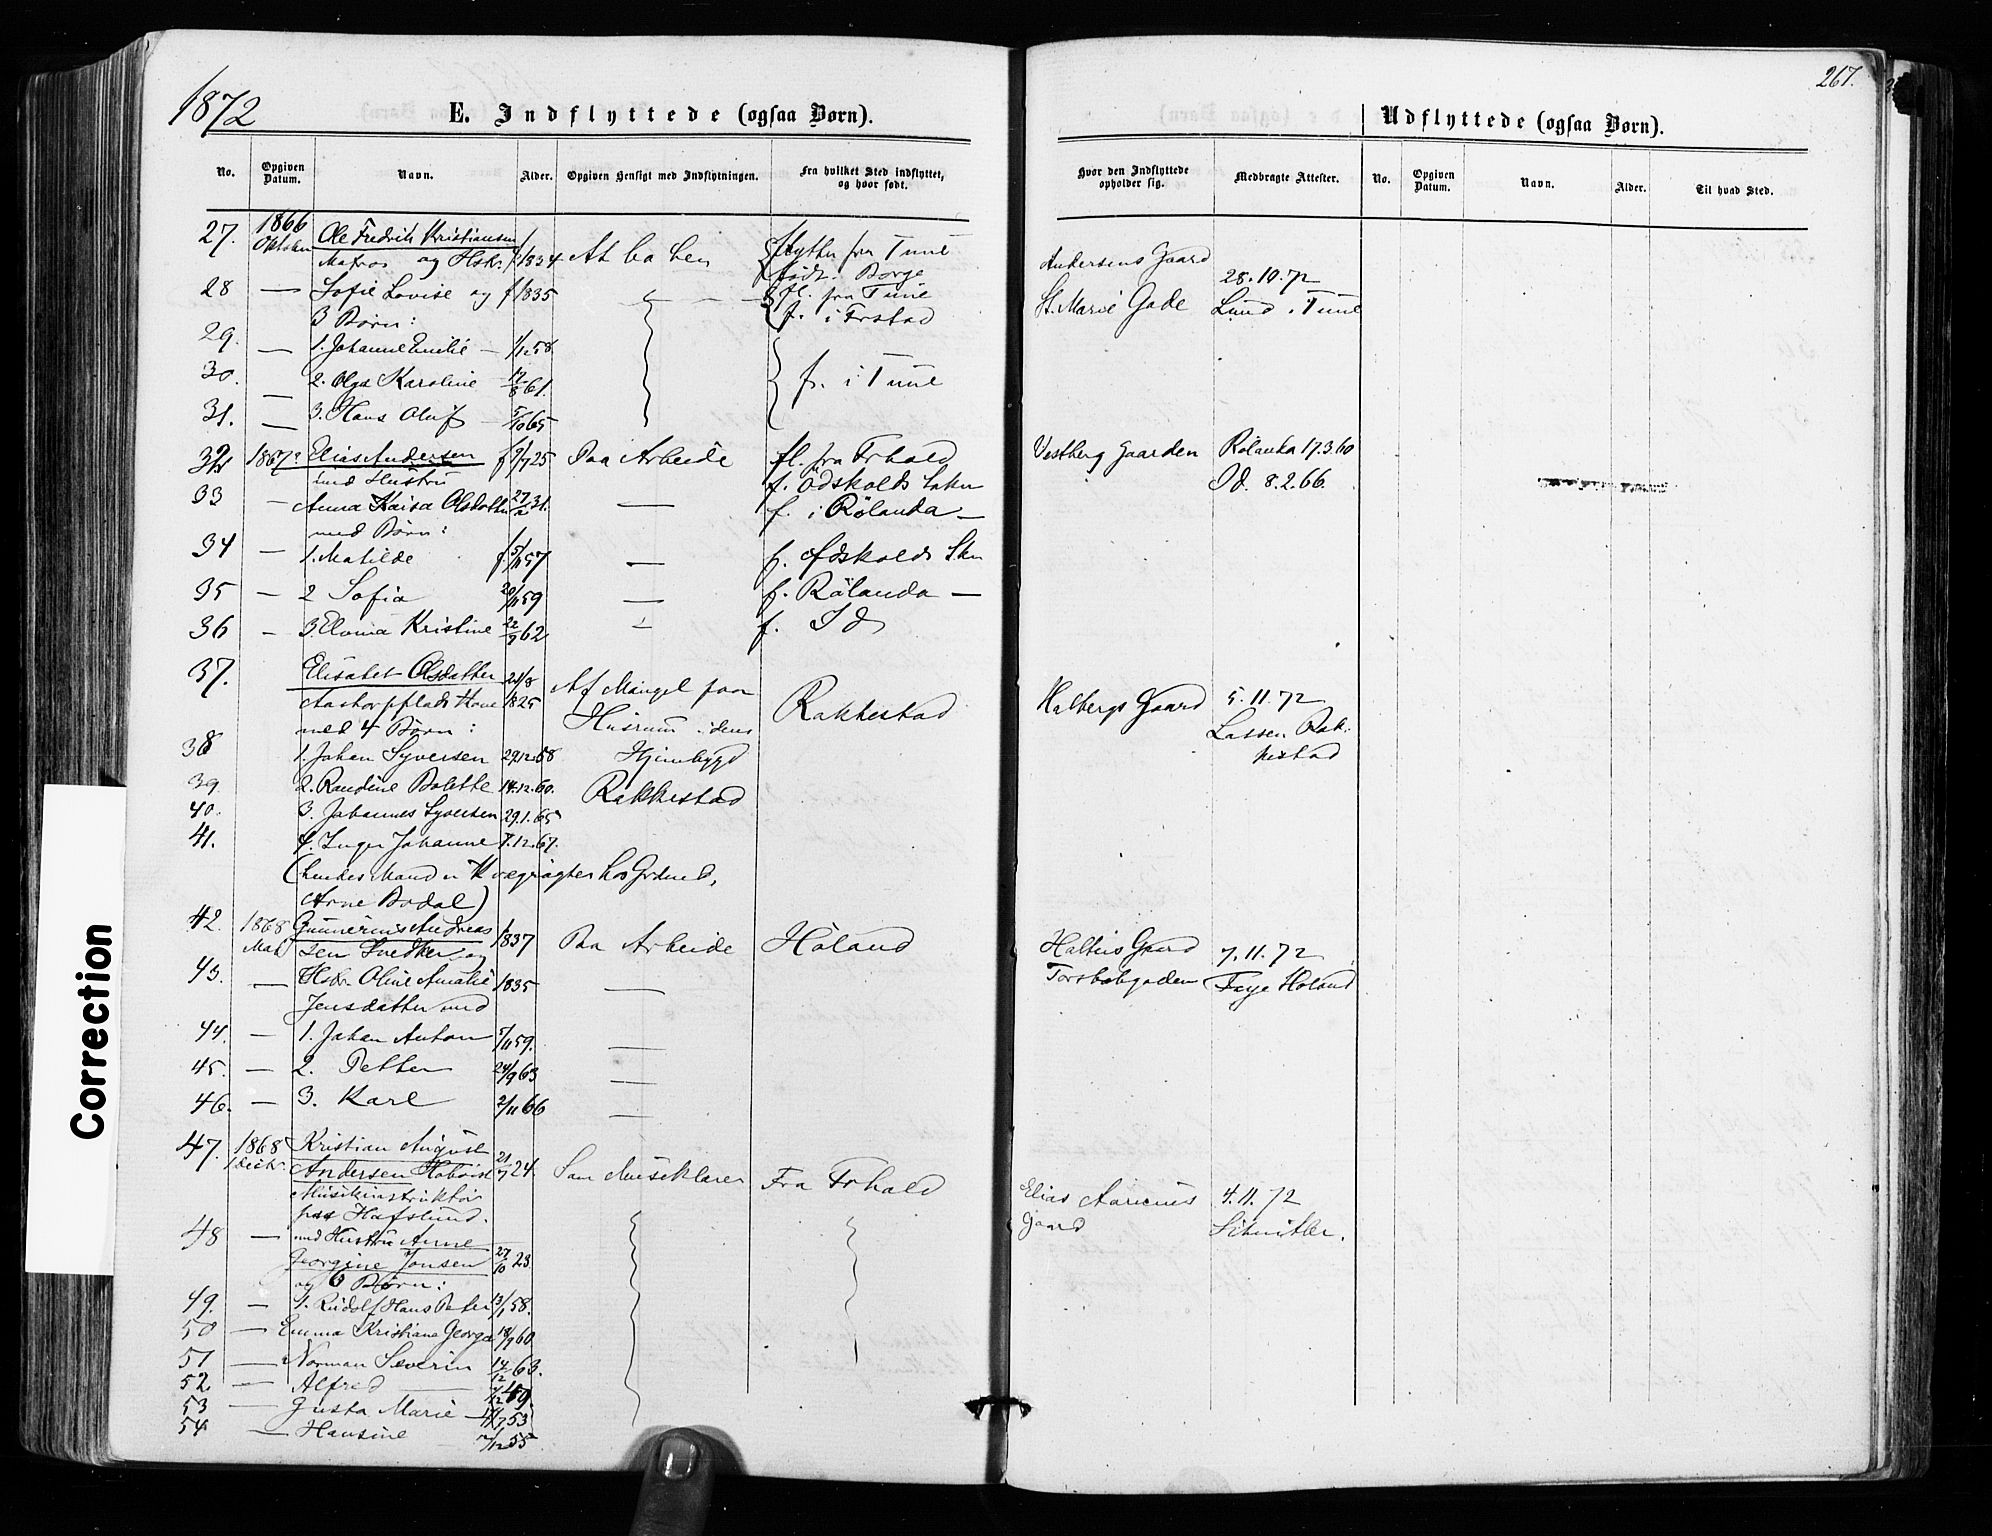 1872
E. Indflyttede (ogsaa Børn).
No.
Opgiven Datum.
Navn.
Alder.
Opgiven Hensigt med Indflytningen.
Fra hvilket Sted indflyttet, og hvor født.
27. 1866 Ole Fredrik Kristiansen
Matros og Hstr. f. 1834 flytter fra Tune
født Borge
28 — Sofie Lovise og f 1835 fl. fra Tune
3 Børn: f. i
29. — 1. Johanne Emilie — 1/12 58 f. i Tune
30. — 2. Olga Karoline 61.
31. — 3. Hans Oluf 5/10 65
32 1867 Elias Andersen f 9/7 25 Paa Arbeide fl. fra Frhald
med Hustru f. Ödskolds Sokn
33 — Anna Kaisa Olsdatter 31. — f. i Rölanda —
med Børn:
34 — 1. Matilde f 5/11 57 — f. Ödskolds Skn
35 — 2 Sofia 20/11 59 — f. Rölanda —
36 — 3 Elvina Kristine 22/9 62 — f. Id
37. Elisabet Olsdatter 21/8 1825 Af Mangel paa Rakkestad
Husrum i dens
med 4 Børn:
38 1. Johan Syversen 29.12.58 Hjembygd
39 2. Randine Bolette 14.12.60. Rakkestad
40. 3. Johannes Syversen 29.1.65
41. 4. Inger Johanne 7.12.67.
(hendes Mand er Kvægrøgter hos Grdmd,
Arne Bodal)
42. 1868 Gunnerius Andreas 1837 Paa Arbeide Høland
sen Snedker og
43. — Hstr. Oline Amalie 1835 —
Jensdatter med
44. — 1. Johan Anton 5/11 59. —
45. — 2. Petter 24/9 63 —
46. — 3. Karl 2/11 66 —
47. 1868 Kristian August 21/7 24. Som Musiklærer Fra Frhald
Andersen
Musikinstruktør
paa Hafslund.
48 — med Hustru Anne
Georgine Jonsen 27/10 23.
og 6 Børn:
49. — 1. Rudolf Hans Peter 13/1 58.
50 — Emma Kristiane Georga 18/9 60
51 — Norman Severin 14/12 63.
52 — Alfred —
53 — Gusta Marie — 53
54 — Hansine 55
267.
Udflyttede (ogsaa Børn).
Hvor den Indflyttede opholder sig.
Medbragte Attester.
No.
Opgiven Datum.
Navn.
Alder.
Til hvad Sted.
Andersens Gaard
28.10.72
St. Marie Gade Lund. Tune
Vestberg Gaarden Rölanda 17.3.60
Id. 8.2.66.
Halbergs Gaard 5.11.72
Lassen Rak-
kestad
Gaard 7.11.72
Faye Høland
Elias Gaard 4.11.72
Schnitler.
Correction